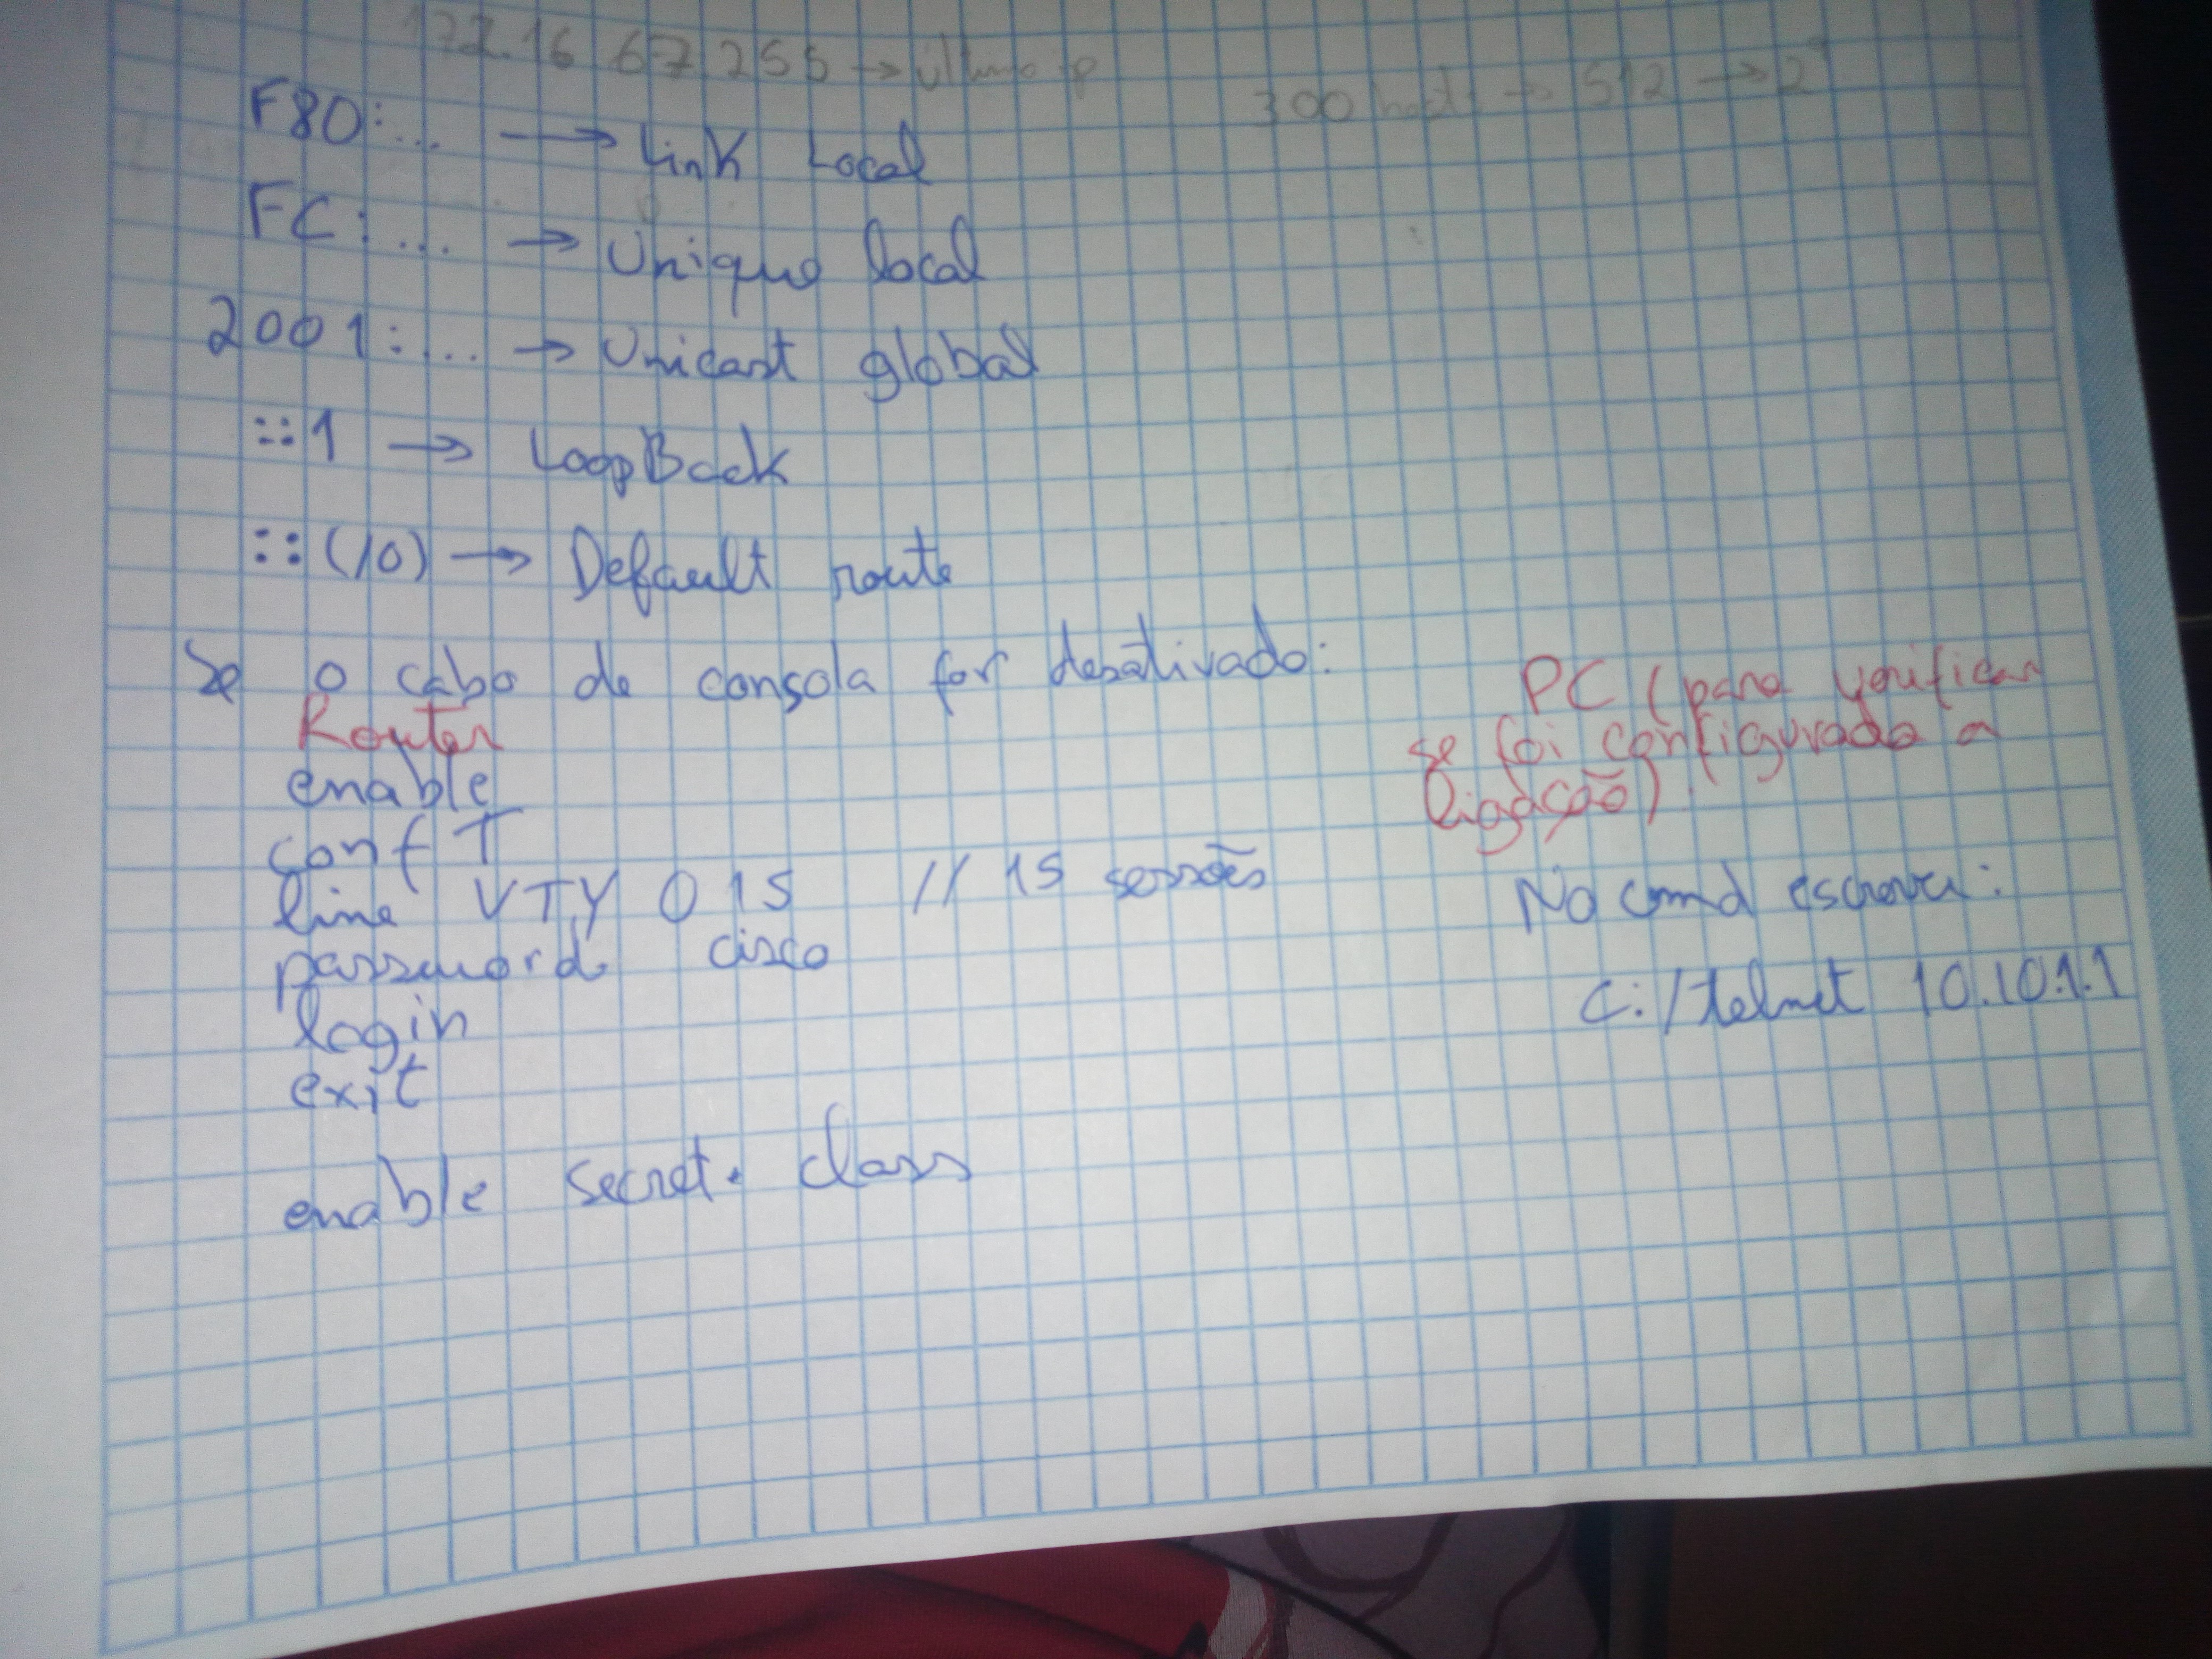 172.16.67.255 → último ip
300 hosts → 512 → 2⁹
F80:... → Link Local
FC:... → Unique local
2001:... → Unicast global
::1 → LoopBack
::(/0) → Default route
Se o cabo de consola for desativado:
Router
enable
conf T
line VTY 0 15 // 15 sessões
password cisco
login
exit
enable secret class
PC (para verificar
se foi configurado a
ligação)
No cmd escrever:
C:/telnet 10.10.1.1